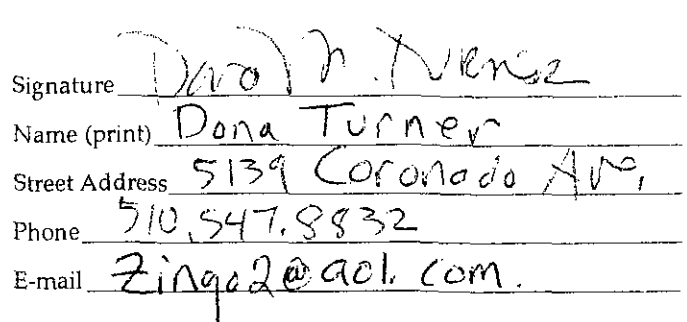 Signature
Name (print) Dona Turner
Street Address 5139 Coronado Ave.
Phone 510.547.8832
E-mail Zingo2@aol.com.